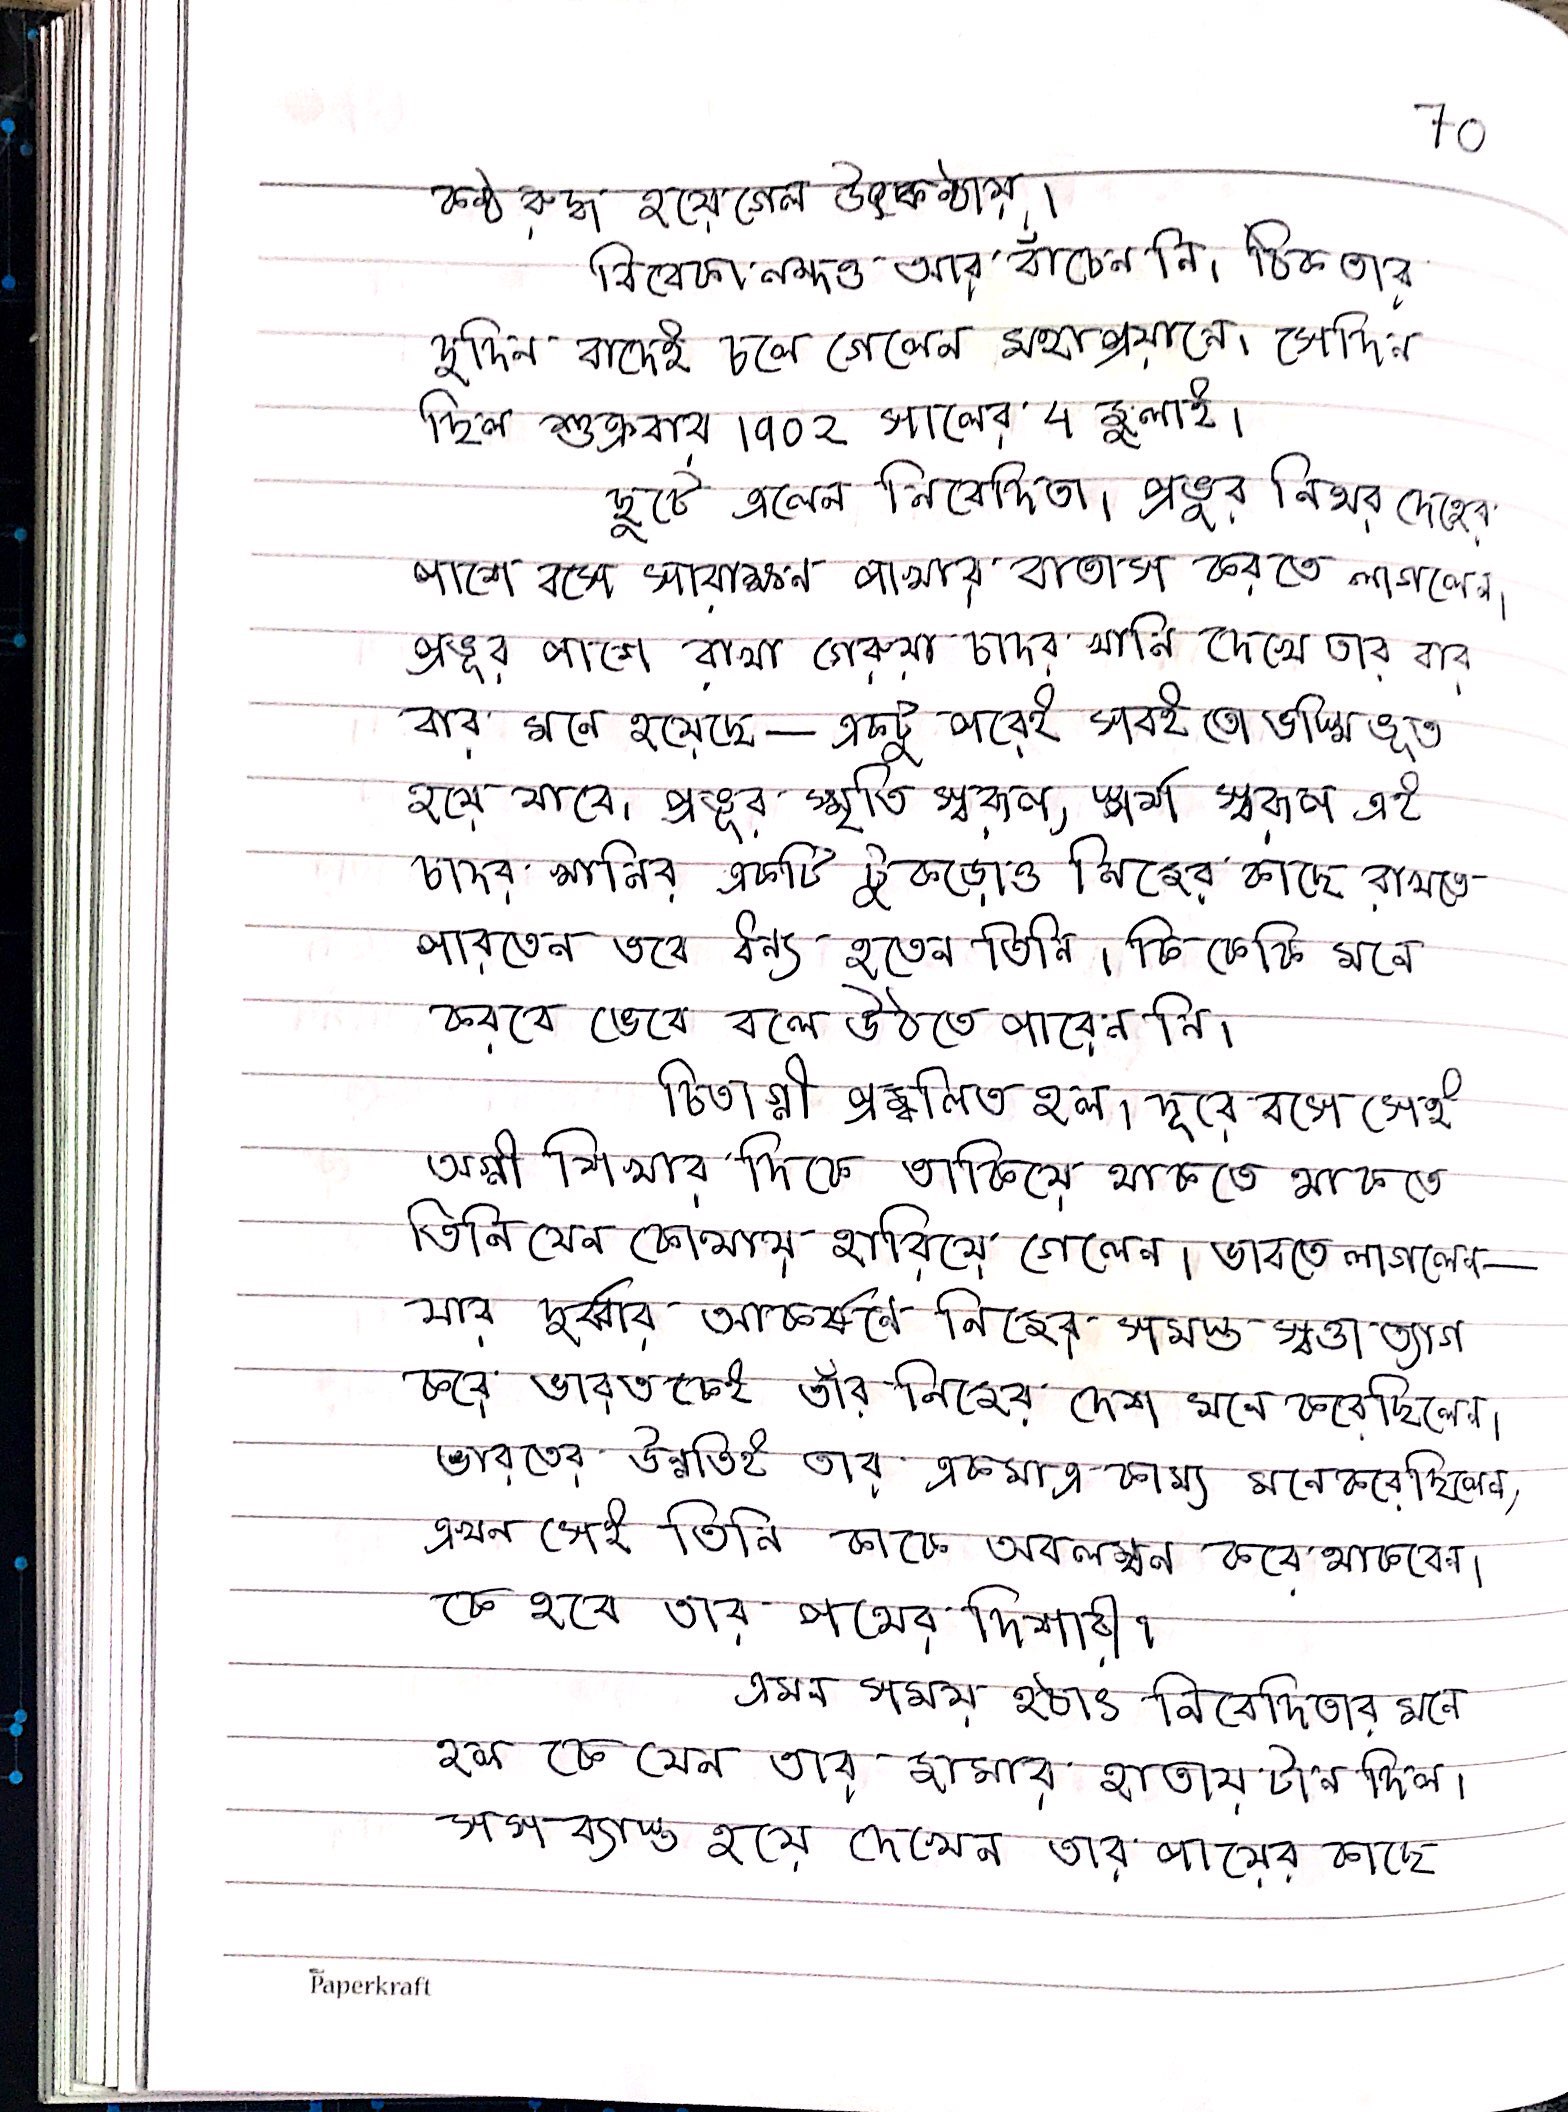 70
কণ্ঠ রুদ্ধ হয়ে গেল উৎকণ্ঠায়।
বিবেকানন্দও আর বাঁচেন নি। ঠিক তার
দুদিন বাদেই চলে গেলেন মহাপ্রয়ানে। সেদিন
ছিল শুক্রবার ১৯০২ সালের ৪ জুলাই।
ছুটে এলেন নিবেদিতা। প্রভুর নিথর দেহের
পাশে বসে সারাক্ষন পাখার বাতাস করতে লাগলেন।
প্রভূর পাশে রাখা গেরুয়া চাদর খানি দেখে তার বার
বার মনে হয়েছে — একটু পরেই সবই তো ভস্মিভূত
হয়ে যাবে। প্রভূর স্মৃতি স্বরূপ, স্পর্শ স্বরূপ এই
চাদর খানির একটি টুকড়োও নিজের কাছে রাখতে
পারতেন তবে ধন্য হতেন তিনি। কি কেকি মনে
করবে ভেবে বলে উঠতে পারেন নি।
চিতাগ্নী প্রজ্বলিত হল। দূরে বসে সেই
অগ্নী শিখার দিকে তাকিয়ে থাকতে থাকতে
তিনি যেন কোথায় হারিয়ে গেলেন। ভাবতে লাগলেন —
যার দুর্ব্বার আকর্ষনে নিজের সমস্ত স্বত্তা ত্যাগ
করে ভারতকেই তাঁর নিজের দেশ মনে করেছিলেন।
ভারতের উন্নতিই তার একমাত্র কাম্য মনে করেছিলেন,
এখন সেই তিনি কাকে অবলম্বন করে থাকবেন।
কে হবে তার পথের দিশারী?
এমন সময় হঠাৎ নিবেদিতার মনে
হল কে যেন তার জামার হাতায় টান দিল।
সসব্যাস্ত হয়ে দেখেন তার পায়ের কাছে
Paperkraft